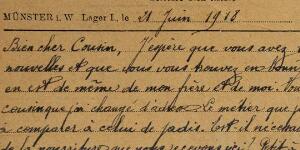 MÜNSTER i. W Lager I., le 21 Juin 1918
Bien cher Cousin, J'espère que vous avez
nouvelles et que vous vous trouvez en bonn
en est de même de mon frère et de moi. Vou
cousin que j'ai changé d'idée. Le métier que j
à comparer à celui de jadis. Est-il
de la nourriture que